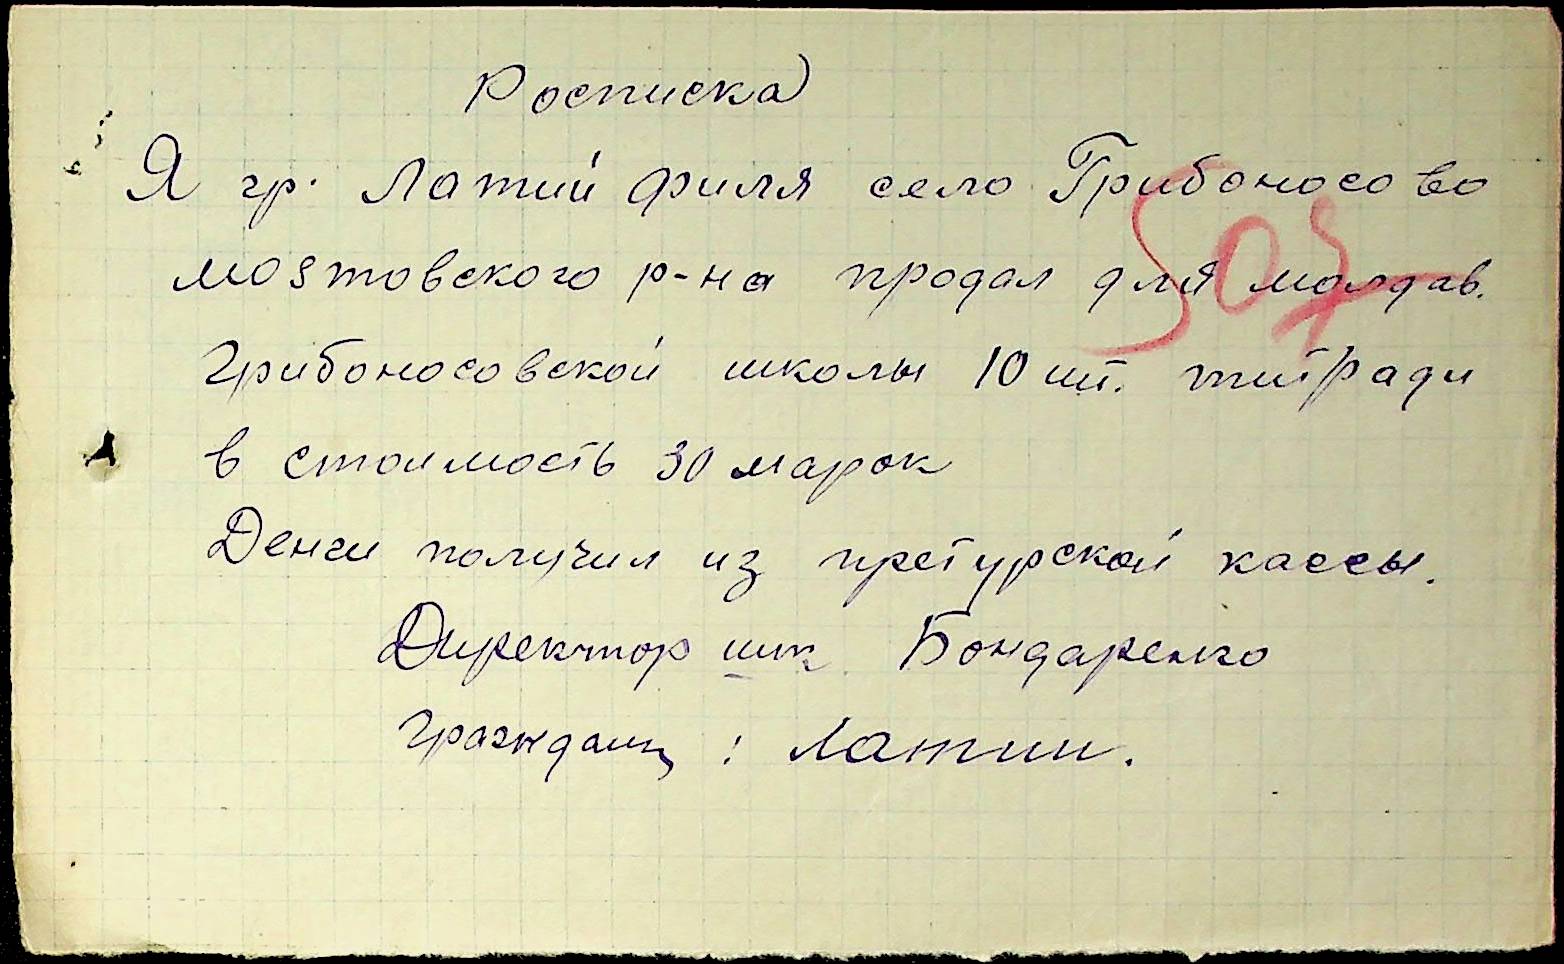 Росписка
Я гр. Латий Филя село Грибоносово
мостовского р-на продал для молдав.
Грибоносовской школы 10 шт. титради
в стоимость 30 марок
Денги получил из претурской кассы.
Директор шк Бондаренко
Граждан : Латии.